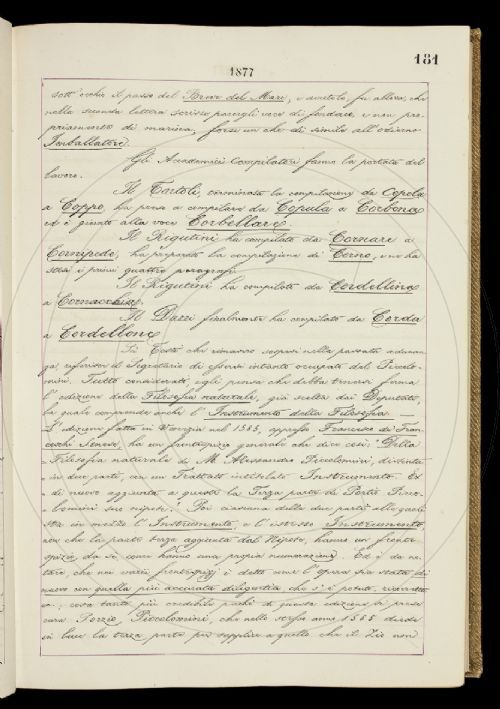 181
1877
sott'occhio il passo del Breve del Mare, e avutolo, fu allora, che
nella seconda lettera scrisse parergli voce di fondaco, e non pro-
priamente di marina, forse un che di simile all'odierno
Imballatore.
Gli Accademici Compilatori fanno la portata del
lavoro.
Il Tortoli, terminata la compilazione da Copola
a Coppo, ha preso a compilare da Copula a Corbona
ed è giunto alla voce Corbellare
Il Rigutini ha compilato da Cornare a
Cornipede, ha preparato la compilazione di Corno, e ne ha
stesi i primi quattro paragrafi.
Il Rigutini ha compilato da Cordellina
a Cornacchia.
Il Dazzi finalmente ha compilato da Corda
a Cordellone
Sui Testi che rimasero sospesi nella passata adunan-
za, riferisce il Segretario di essersi intanto occupato del Piccolo-
mini. Tutto considerato, egli pensa che debba tenersi ferma
l'edizione della Filosofia naturale, già scelta dai Deputati,
la quale comprende anche l'Instrumento della Filosofia. —
L'edizione fatta in Venezia nel 1585, appresso Francesco de' Fran-
ceschi Senese, ha un frontespizio generale che dice così: "Della
Filosofia naturale di M. Alessandro Piccolomini, distinta
in due parti, con un Trattato intitolato Instrumento. Et
di nuovo aggiunta a queste la Terza parte di Porzio Picco-
lomini suo nipote". Poi ciascuna delle due parti alle quali
sta in mezzo l'Instrumento, e l'istesso Instrumento,
non che la parte terza aggiunta dal Nipote, hanno un fronte-
spizio da sè come hanno una propria numerazione. Ed è da no-
tare, che nei varii frontespizj è detto come l'opera sia stata di
nuovo con quella più accurata diligentia che s'è potuto, ricorretta
ec.; cosa tanto più credibile perchè di questa edizione si prese
cura Porzio Piccolomini, che nello stesso anno 1585 diede
in luce la terza parte per supplire a quello che il Zio non